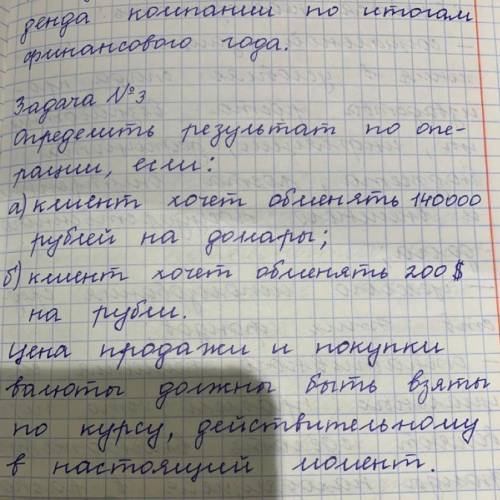 денда компании по итогам
финансового года.
Задача №3
Определить результат по опе-
рации, если:
а) клиент хочет обменять 140000
рублей на доллары;
б) клиент хочет обменять 200$
на рубли.
Цена продажи и покупки
валюты должны быть взяты
по курсу, действительному
в настоящий момент.